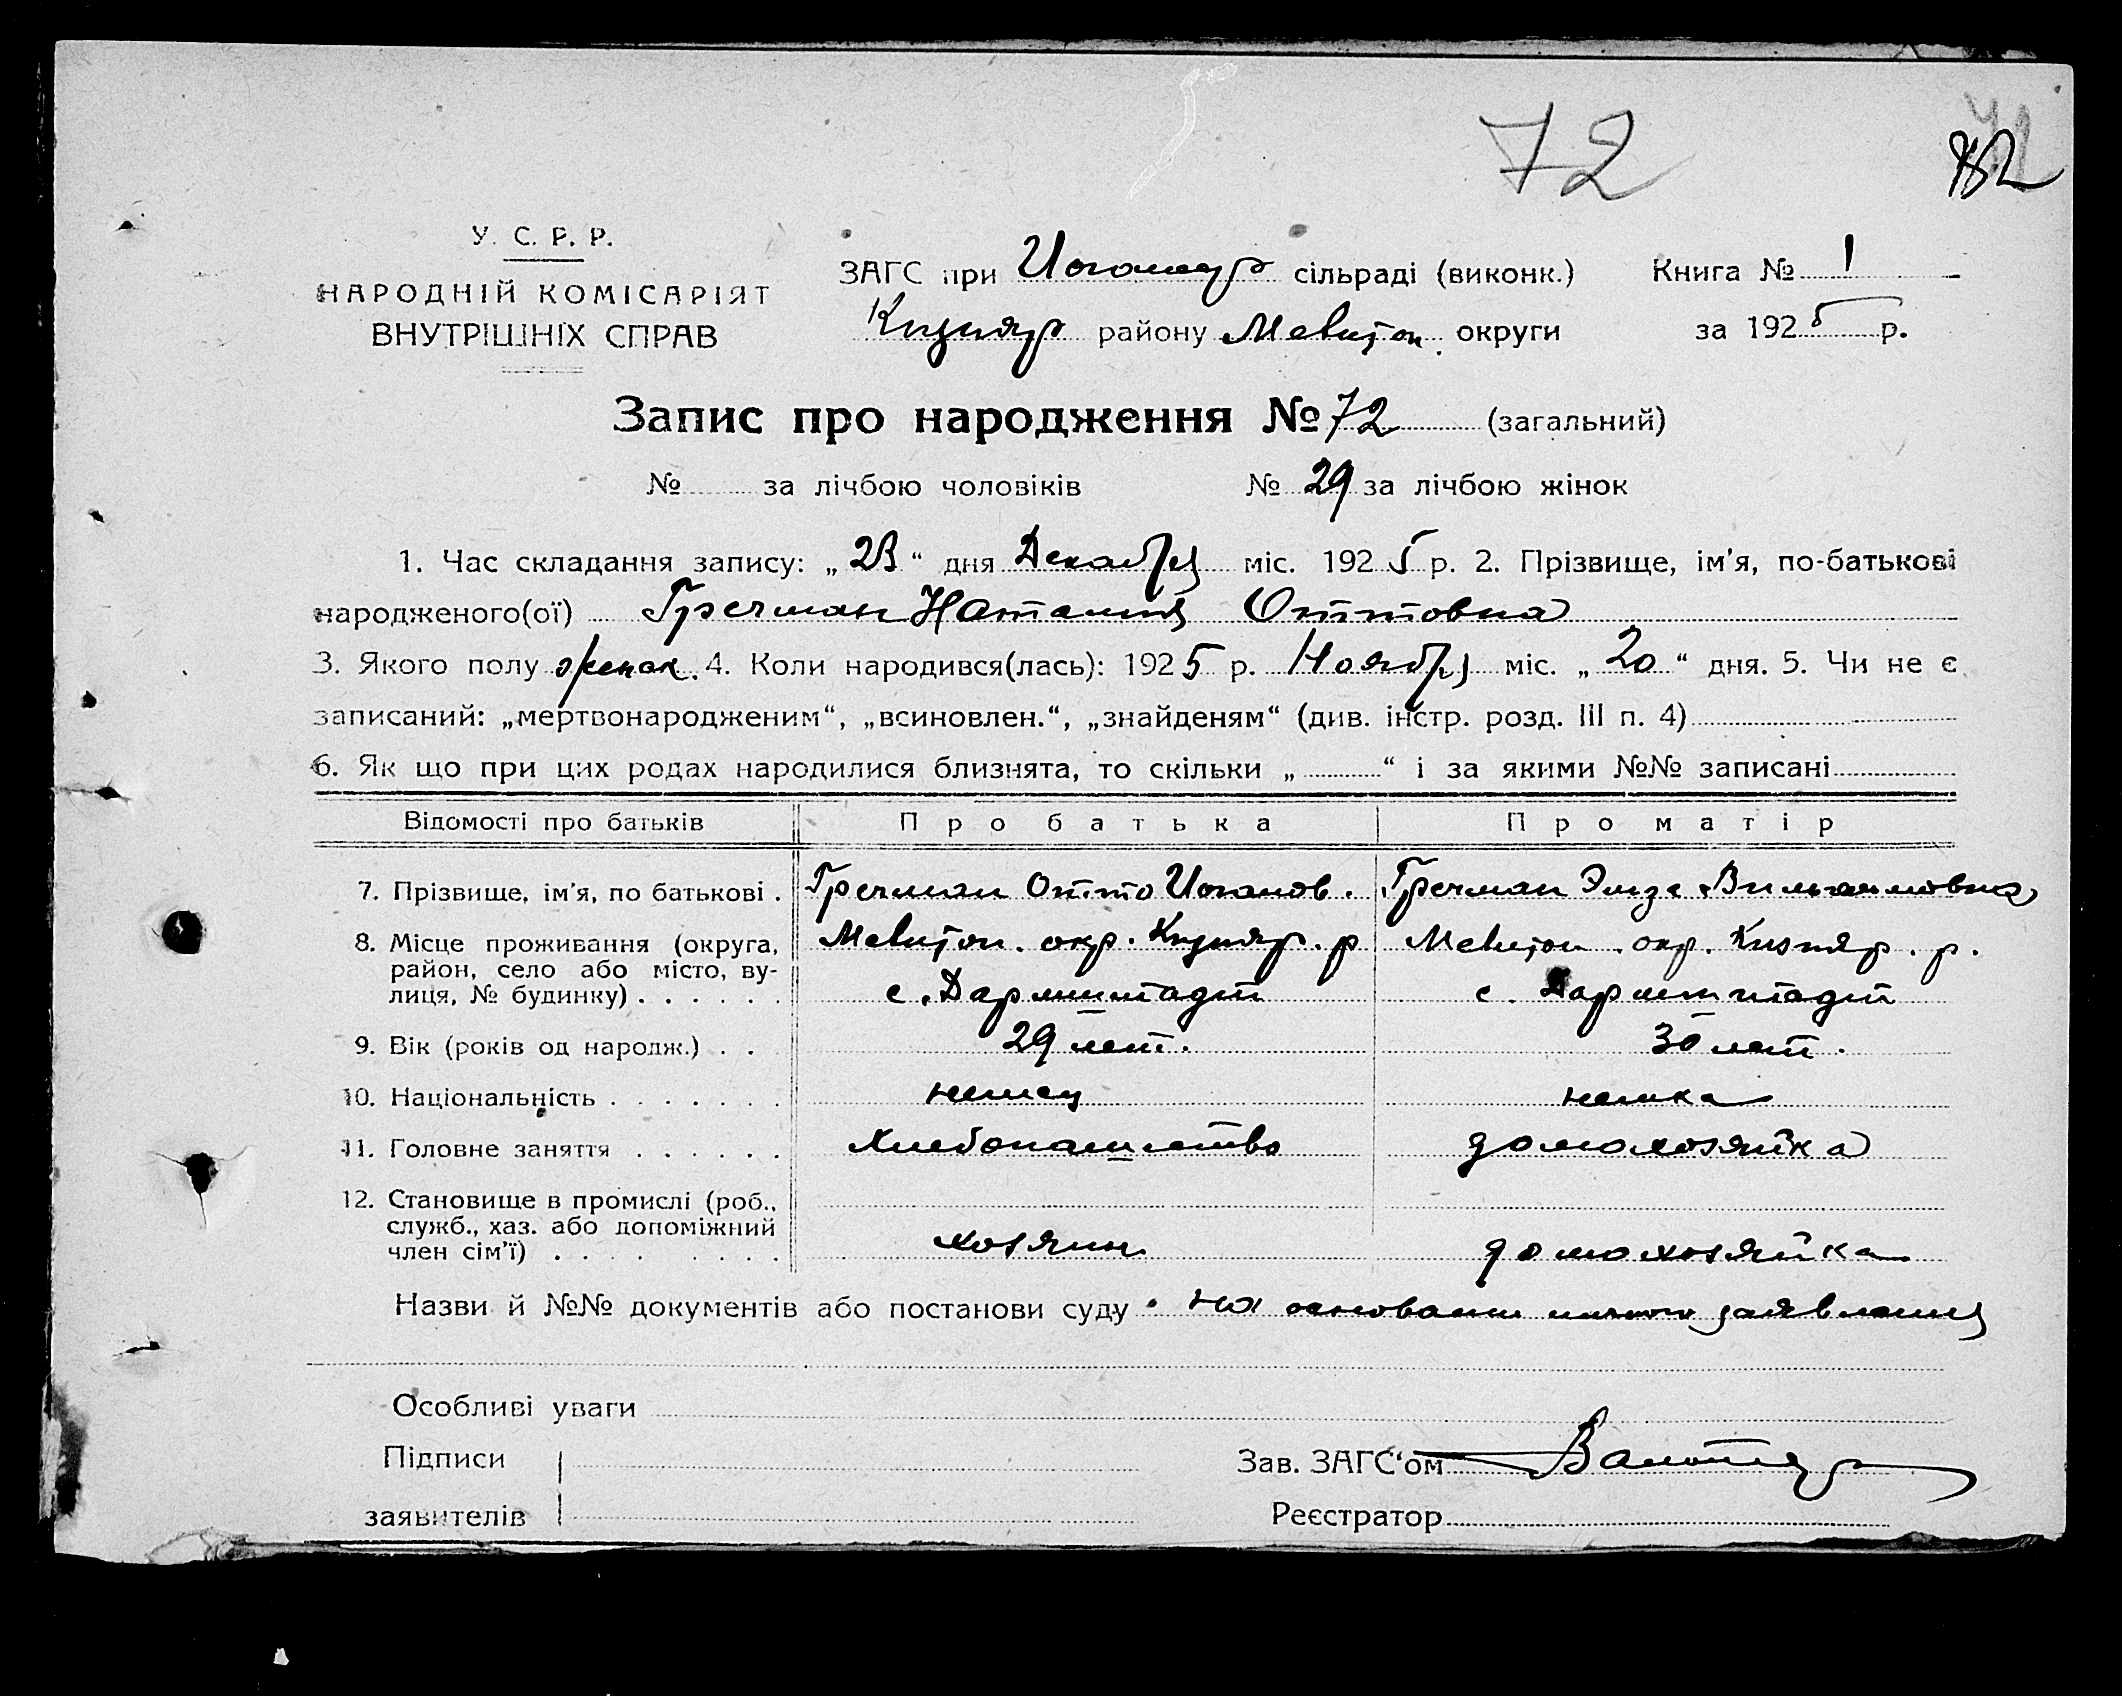 72
У. С. Р. Р.
НАРОДНІЙ КОМІСАРІЯТ
ВНУТРІШНІХ СПРАВ
ЗАГС при сільраді (виконк.)
Кизияр району Мелитоп. округи
Книга № 1
за 1925 р.
Запис про народження № 72 (загальний)
№ за лічбою чоловіків № 29 за лічбою жінок
1. Час складання запису: „23“ дня Декабря міс. 1925 р. 2. Прізвище, ім'я, по-батькові
народженого(ої) Гречман Наталия Оттовна
3. Якого полу женск. 4. Коли народився(лась): 1925 р. Ноября міс. „20“ дня. 5. Чи не є
записаний: „мертвонародженим“, „всиновлен.“, „знайденям“ (див. інстр. розд. III п. 4)
6. Як що при цих родах народилися близнята, то скільки „ “ і за якими №№ записані
Відомості про батьків Про батька Про матір
7. Прізвище, ім'я, по батькові . Гречман Отто Иоганов. Гречман Эмза Вильгельмовна
8. Місце проживання (округа, район, село або місто, вулиця, № будинку) . . . . . . Мелитоп. окр. Кизияр. р с. Дармштадт Мелитоп. окр. Кизияр. р. с. Дармштадт
9. Вік (років од народж.) . . 29 лет. 30 лет.
10. Національність . . . . . . . немец немка
11. Головне заняття . . . . . . Хлебопашество домохозяйка
12. Становище в промислі (роб., служб., хаз. або допоміжний член сім'ї) . . . . . . . . хозяин домохозяйка
Назви й №№ документів або постанови суду на основании заявления
Особливі уваги
Підписи
заявителів
Зав. ЗАГС'ом
Реєстратор